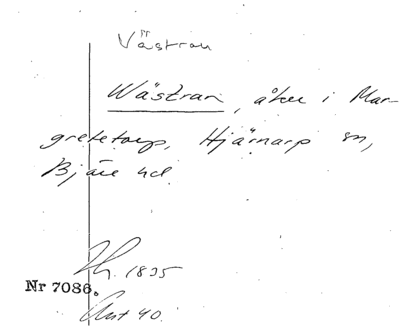 Västran
Wästran, åker i Mar-
gretetorp, Hjärnarp sn,
Bjäre hd.
Th. 1835
Nr 7086.
Avt 40.